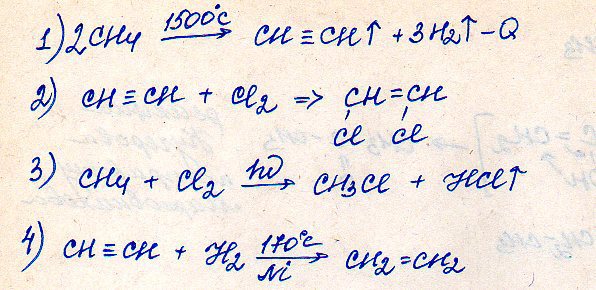 1) 2CH4 1500°C → CH≡CH↑ + 3H2↑ - Q
2) CH≡CH + Cl2 => CH=CH
Cl Cl
3) CH4 + Cl2 hν → CH3Cl + HCl↑
4) CH≡CH + H2 170°C → CH2=CH2
Ni